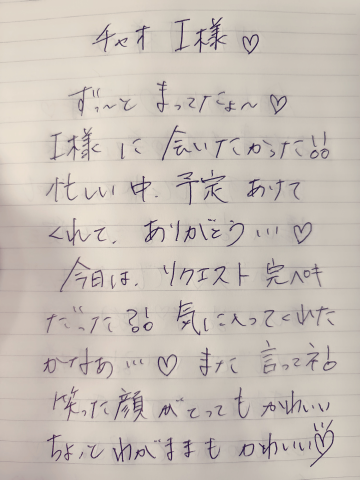 チャオ I様♡
ずっ〜と まってたよ〜♡
I様 に 会いたかった!!
忙しい中、予定 あけて
くれて、ありがとう…♡
今日は、リクエスト 完ペキ
だった?! 気に入ってくれた
かなあ…♡ また 言ってネ!
笑った顔 がとっても かわいい
ちょっとわがままも かわいい♡